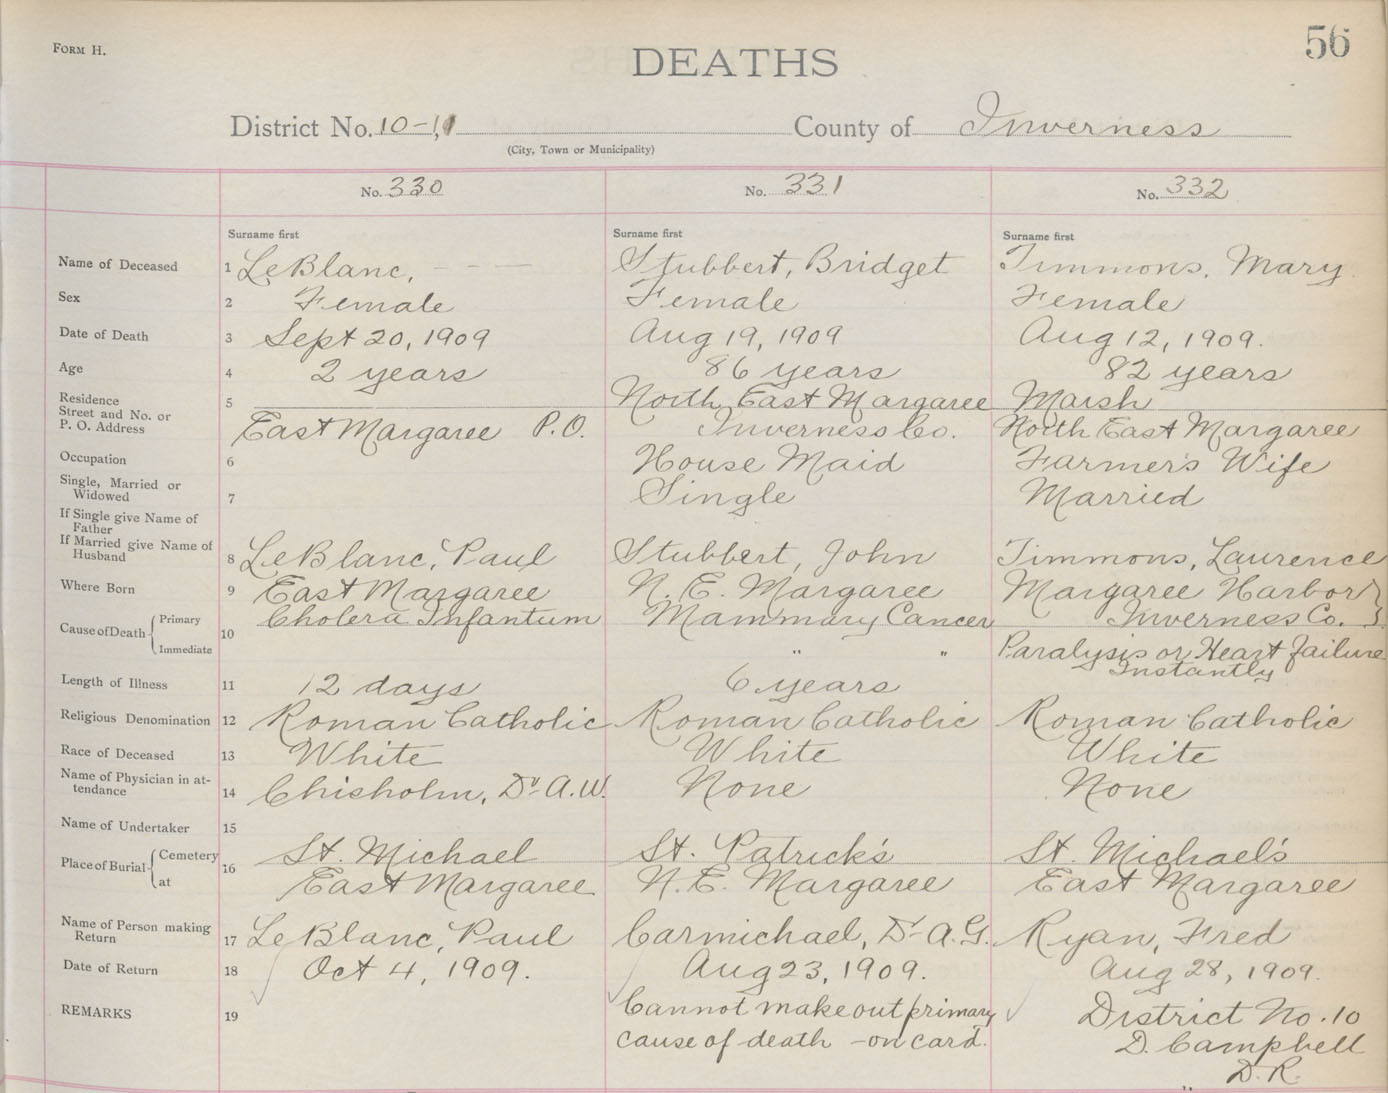 FORM H.
DEATHS
56
District No. 10-11
County of Inverness
(City, Town or Municipality)
No. 330
No. 331
No. 332
Surname first
Surname first
Surname first
Name of Deceased 1 LeBlanc, — — — Stubbert, Bridget Timmons, Mary
Sex 2 Female Female Female
Date of Death 3 Sept 20, 1909 Aug 19, 1909 Aug 12, 1909.
Age 4 2 years 86 years 82 years
Residence 5 North East Margaree Marsh
Street and No. or
P. O. Address East Margaree P.O. Inverness Co. North East Margaree
Occupation 6 House Maid Farmer's Wife
Single, Married or
Widowed 7 Single Married
If Single give Name of
Father
If Married give Name of
Husband 8 LeBlanc, Paul Stubbert, John Timmons, Laurence
Where Born 9 East Margaree N. E. Margaree Margaree Harbor
Cause of Death Primary 10 Cholera Infantum Mammary Cancer Inverness Co.
Immediate " " Paralysis or Heart failure
Instantly
Length of Illness 11 12 days 6 years
Religious Denomination 12 Roman Catholic Roman Catholic Roman Catholic
Race of Deceased 13 White White White
Name of Physician in at-
tendance 14 Chisholm, Dr A.W. None None
Name of Undertaker 15
Place of Burial Cemetery 16 St. Michael St. Patrick's St. Michael's
at East Margaree N.E. Margaree East Margaree
Name of Person making
Return 17 LeBlanc, Paul Carmichael, Dr A.G. Ryan, Fred
Date of Return 18 Oct 4, 1909. Aug 23, 1909. Aug 28, 1909.
REMARKS 19 Cannot make out primary District No. 10
cause of death - on card. D. Campbell
D.R.